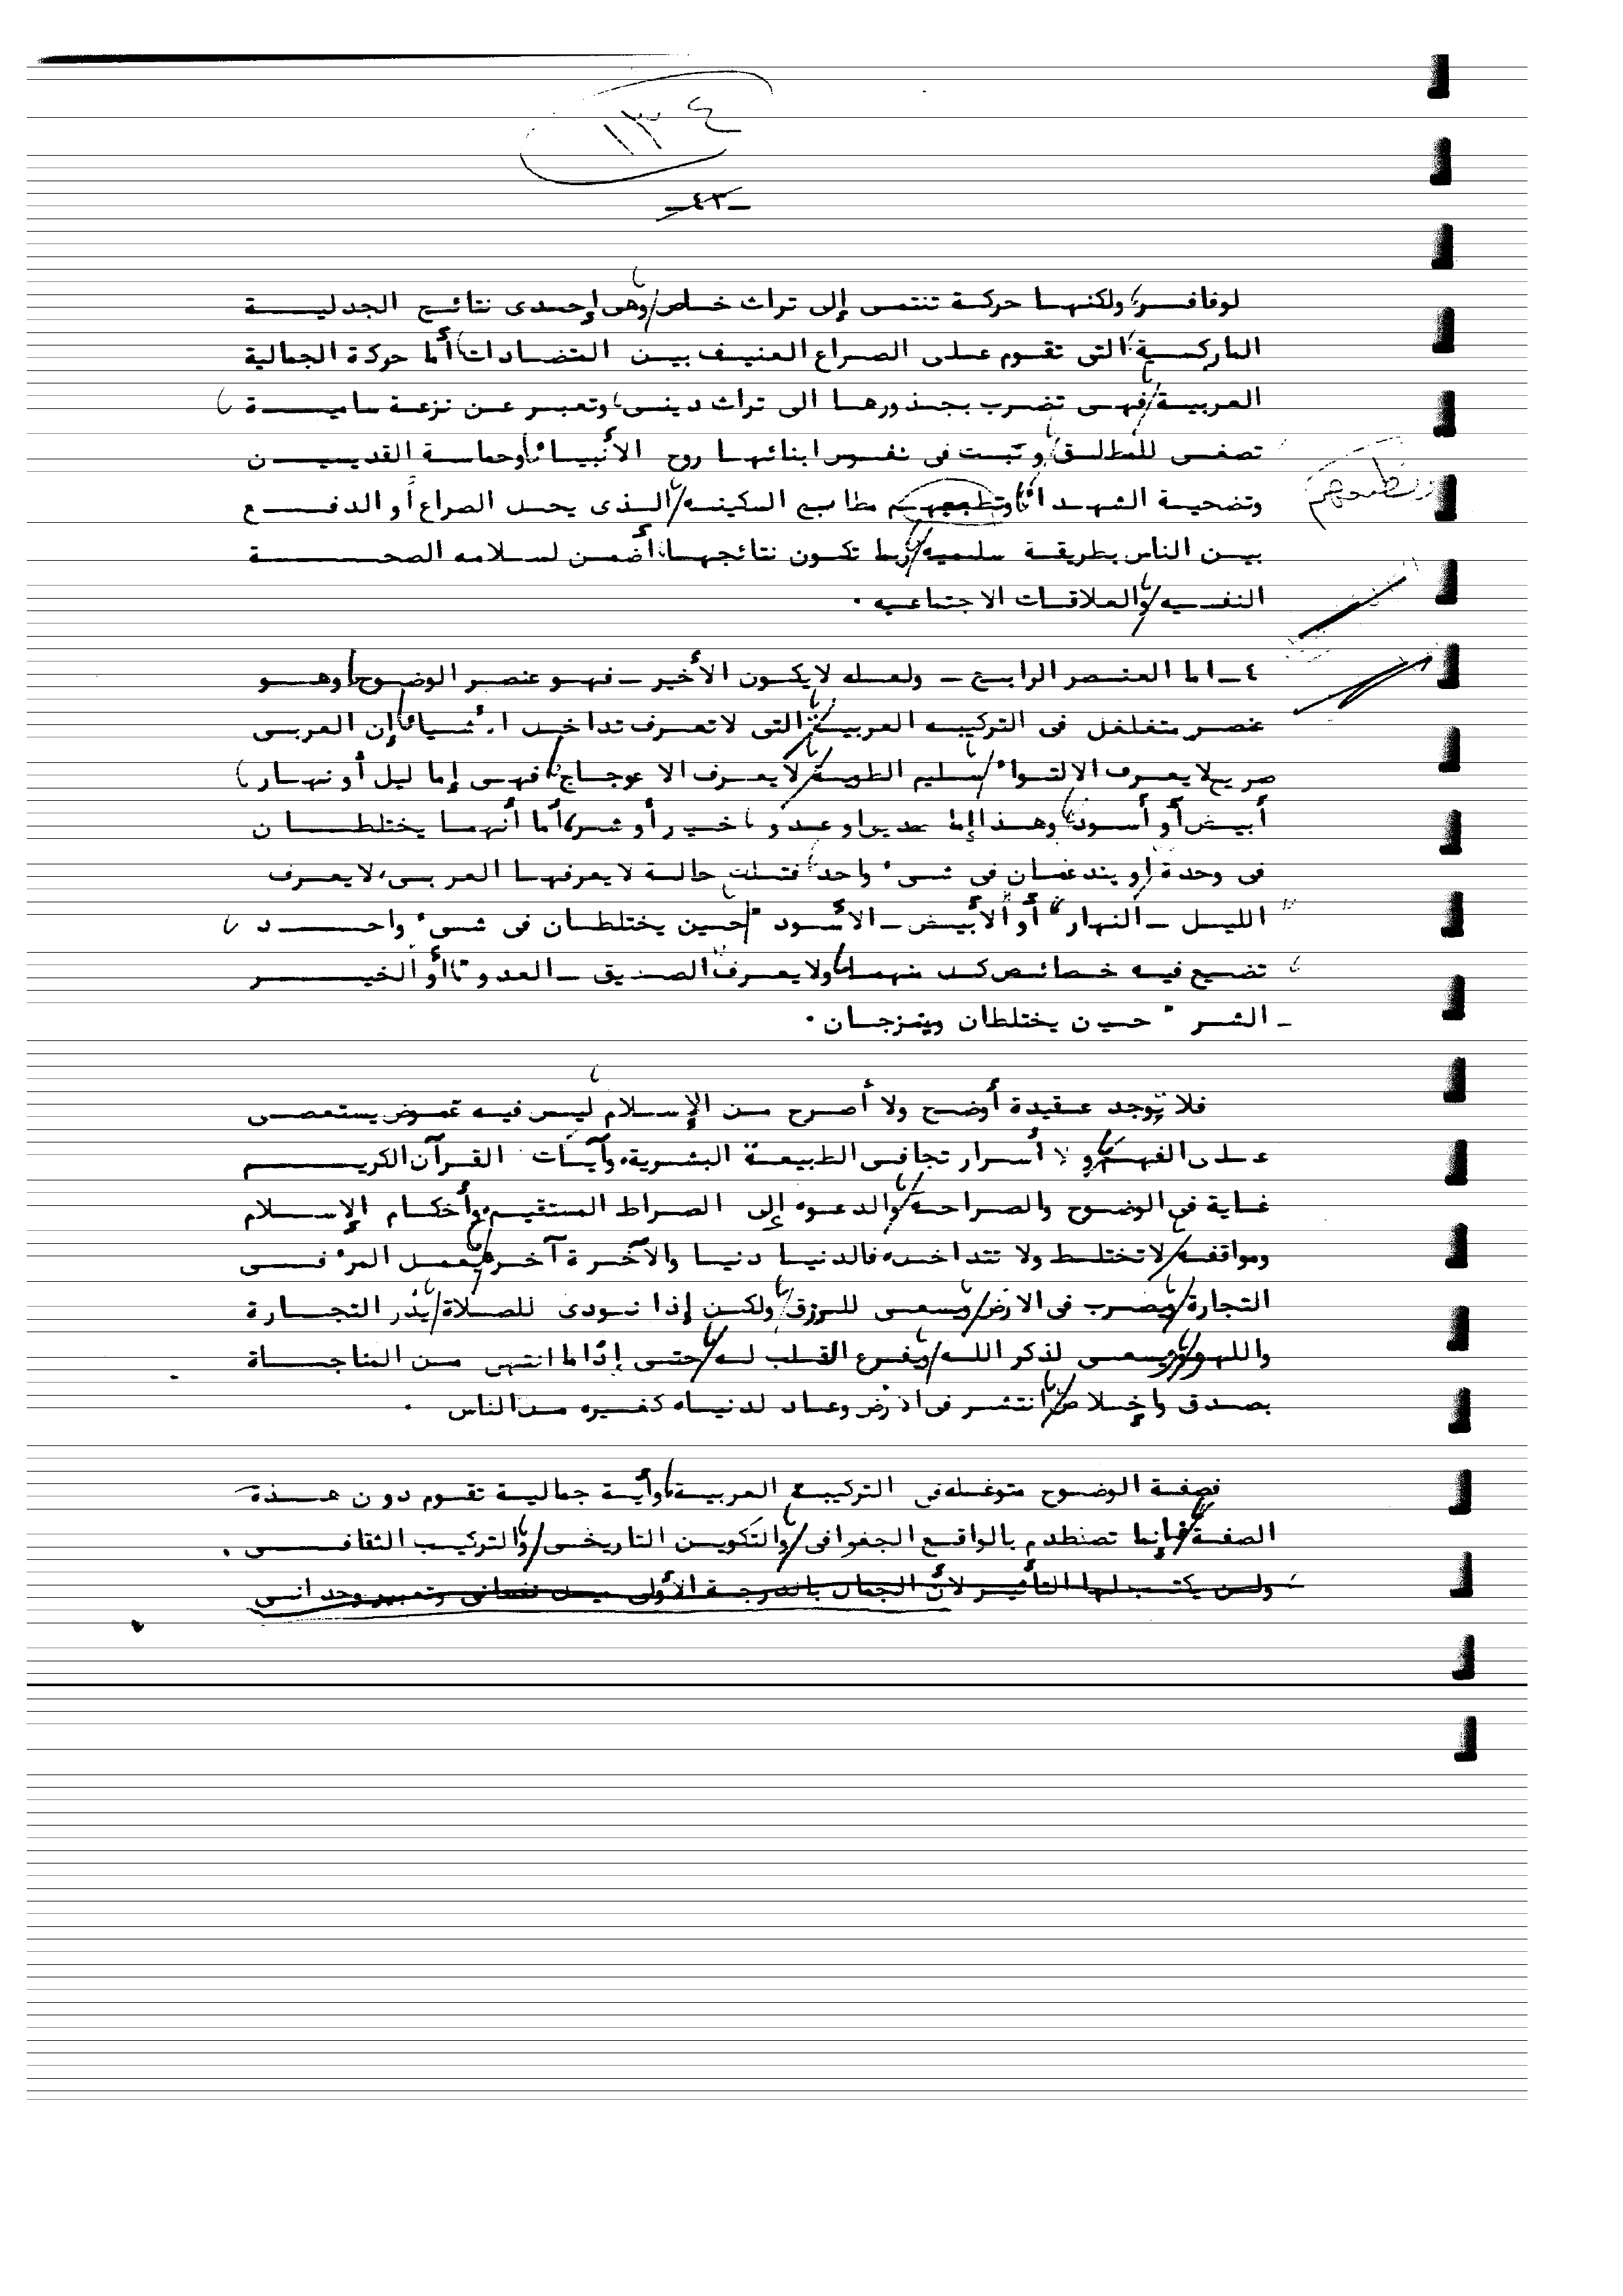 ١٣٤
-٤٣-
لوفافر، ولكنها حركة تنتمى إلى تراث خاص، وهى إحدى نتائج الجدلية
الماركسية، التى تقوم على الصراع العنيف بين المتضادات، أما حركة الجمالية
العربية، فهى تضرب بجذورها الى تراث دينى، وتعبر عن نزعة سامية،
تصغى للمطلق، وتبث فى نفوس ابنائها روح الأنبياء، وحماسة القديسين
وتضحية الشهداء، وتطبعهم بطابع السكينه، الذى يحل الصراع أو الدفع
وتطبعهم
بين الناس بطريقة سلميه، ربما تكون نتائجها، أضمن لسلامه الصحة
النفسيه، والعلاقات الاجتماعيه .
٤- اما العنصر الرابع - ولعله لا يكون الأخير - فهو عنصر الوضوح، وهو
عنصر متغلغل فى التركيبه العربية، التى لا تعرف تداخل الأشياء، إن العربى
صريح لا يعرف الالتواء، سليم الطوية، لا يعرف الاعوجاج، فهى إما ليل أو نهار،
أبيض أو أسود، وهذا إما صديق او عدو، خير أو شر، أما أنهما يختلطان
فى وحدة، او يندغمان فى شىء واحد، فتلك حالة لا يعرفها العربى، لا يعرف
" الليل - النهار" أو "الأبيض - الأسود" حين يختلطان فى شىء واحد،
تضيع فيه خصائص كل منهما، ولا يعرف "الصديق - العدو" أو "الخير
- الشر " حين يختلطان ويمتزجان .
فلا توجد عقيدة أوضح ولا أصرح من الإسلام، ليس فيه غموض يستعصى
على الفهم، ولا أسرار تجافى الطبيعة البشرية، وآيات القرآن الكريم
غاية فى الوضوح والصراحة، والدعوه إلى الصراط المستقيم، وأحكام الإسلام
ومواقفه، لا تختلط ولا تتداخل، فالدنيا دنيا والآخرة آخرة، يعمل المرء فى
التجارة، ويضرب فى الارض، ويسعى للرزق، ولكن إذا نودى للصلاة، يذر التجارة
واللهو، ويسعى لذكر الله، ويفرغ القلب له، حتى إذا ما انتهى من المناجاة
بصدق وإخلاص، انتشر فى الأرض وعاد لدنياه كغيره من الناس .
فصفة الوضوح متوغله فى التركيبة العربية، وأية جمالية تقوم دون هذه
الصفة، فإنما تصطدم بالواقع الجغرافى، والتكوين التاريخى، والتركيب الثقافى .
ولن يكتب لها التأثير لأن الجمال بالدرجة الأولى ميل نفسانى وتعبير وجدانى